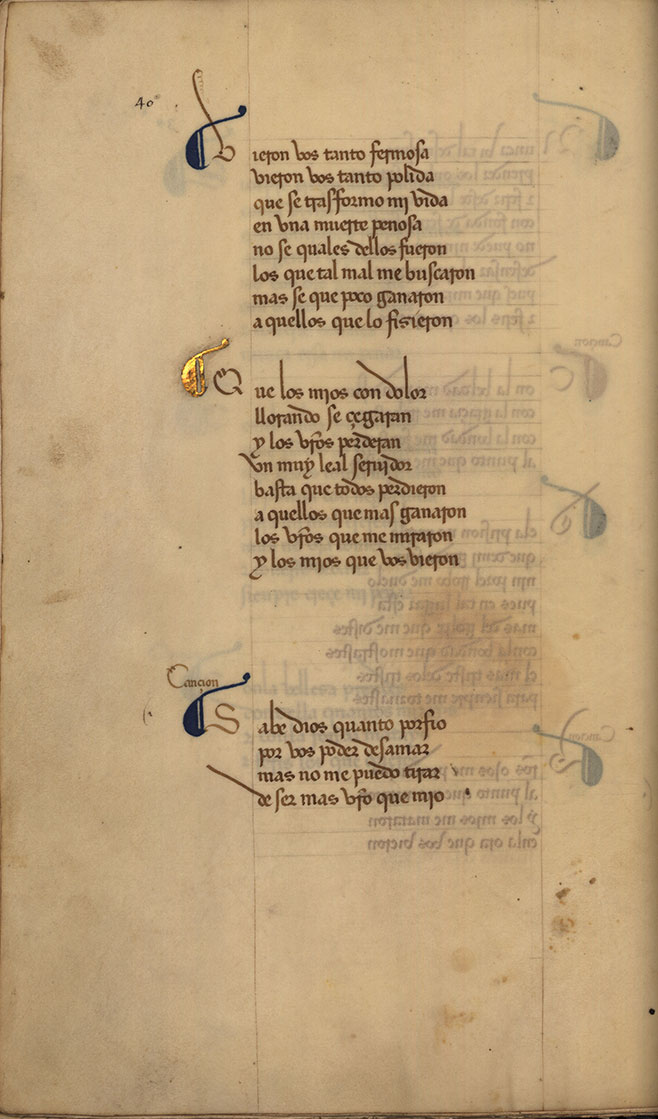 40
Vieron vos tanto fermosa
vieron vos tanto polida
que se trasformo mi vida
en vna muerte penosa
no se quales dellos fueron
los que tal mal me buscaron
mas se que poco ganaron
a quellos que lo fisieron
Que los mios con dolor
llorando se çegaran
y los vros perderan
vn muy leal seruidor
basta que todos perdieron
a quellos que mas ganaron
los vros que me miraron
y los mios que vos vieron
Cançion
Sabe dios quanto porfio
por vos poder desamar
mas no me puedo tirar
de ser mas vro que mio